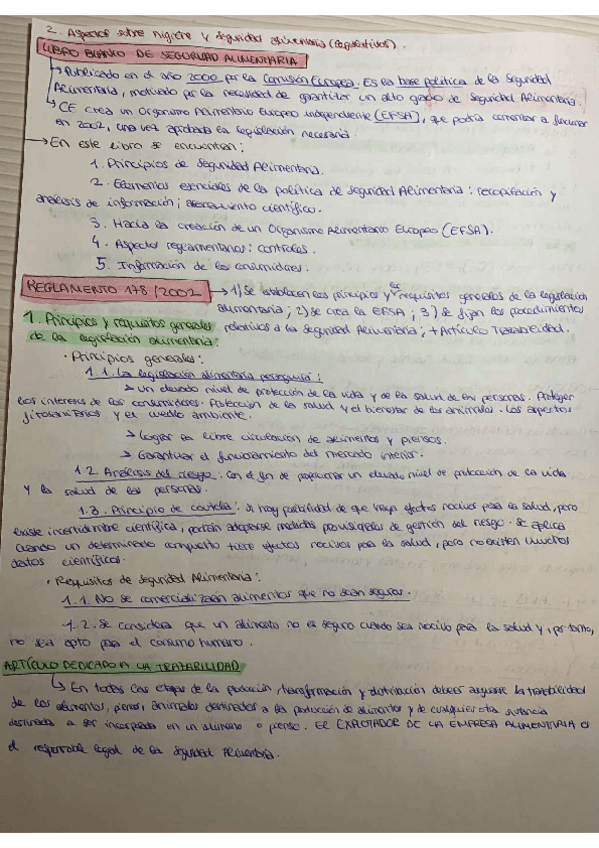 2. Aspectos sobre higiene y seguridad alimentaria (legislativos).
LIBRO BLANCO DE SEGURIDAD ALIMENTARIA
↳ Publicado en el año 2000 por la Comisión Europea. Es la base política de la Seguridad
Alimentaria, motivado por la necesidad de garantizar un alto grado de Seguridad Alimentaria.
↳ CE crea un Organismo Alimentario Europeo Independiente (EFSA), que podría comenzar a funcionar
en 2002, una vez aprobada la legislación necesaria.
→ En este libro se encuentran:
1. Principios de Seguridad Alimentaria.
2. Elementos esenciales de la política de Seguridad Alimentaria: recopilación y
análisis de información; asesoramiento científico.
3. Hacia la creación de un Organismo Alimentario Europeo (EFSA).
4. Aspectos reglamentarios: controles.
5. Información de los consumidores.
REGLAMENTO 178/2002 → 1) Se establecen los principios y los requisitos generales de la legislación
alimentaria; 2) se crea la EFSA; 3) se fijan los procedimientos
relativos a la Seguridad Alimentaria; + Artículo Trazabilidad.
1. Principios y requisitos generales
de la legislación alimentaria:
· Principios generales:
1.1. La legislación alimentaria perseguirá:
→ Un elevado nivel de protección de la vida y de la salud de las personas. Proteger
los intereses de los consumidores. Protección de la salud y el bienestar de los animales. Los aspectos
fitosanitarios y el medio ambiente.
→ Lograr la libre circulación de alimentos y piensos.
→ Garantizar el funcionamiento del mercado interior.
1.2. Análisis del riesgo: Con el fin de proporcionar un elevado nivel de protección de la vida
y la salud de las personas.
1.3. Principio de cautela: Si hay posibilidad de que haya efectos nocivos para la salud, pero
existe incertidumbre científica, podrán adoptarse medidas provisionales de gestión del riesgo. Se aplica
cuando un determinado compuesto tiene efectos nocivos para la salud, pero no existen muchos
datos científicos.
· Requisitos de Seguridad Alimentaria:
1.1. No se comercializarán alimentos que no sean seguros.
1.2. Se considera que un alimento no es seguro cuando sea nocivo para la salud y, por tanto,
no sea apto para el consumo humano.
ARTÍCULO DEDICADO A LA TRAZABILIDAD
↳ En todas las etapas de la producción, transformación y distribución deberá asegurarse la trazabilidad
de los alimentos, piensos, animales destinados a la producción de alimentos y de cualquier otra sustancia
destinada a ser incorporada en un alimento o pienso. EL EXPLOTADOR DE LA EMPRESA ALIMENTARIA es
el responsable legal de la Seguridad Alimentaria.